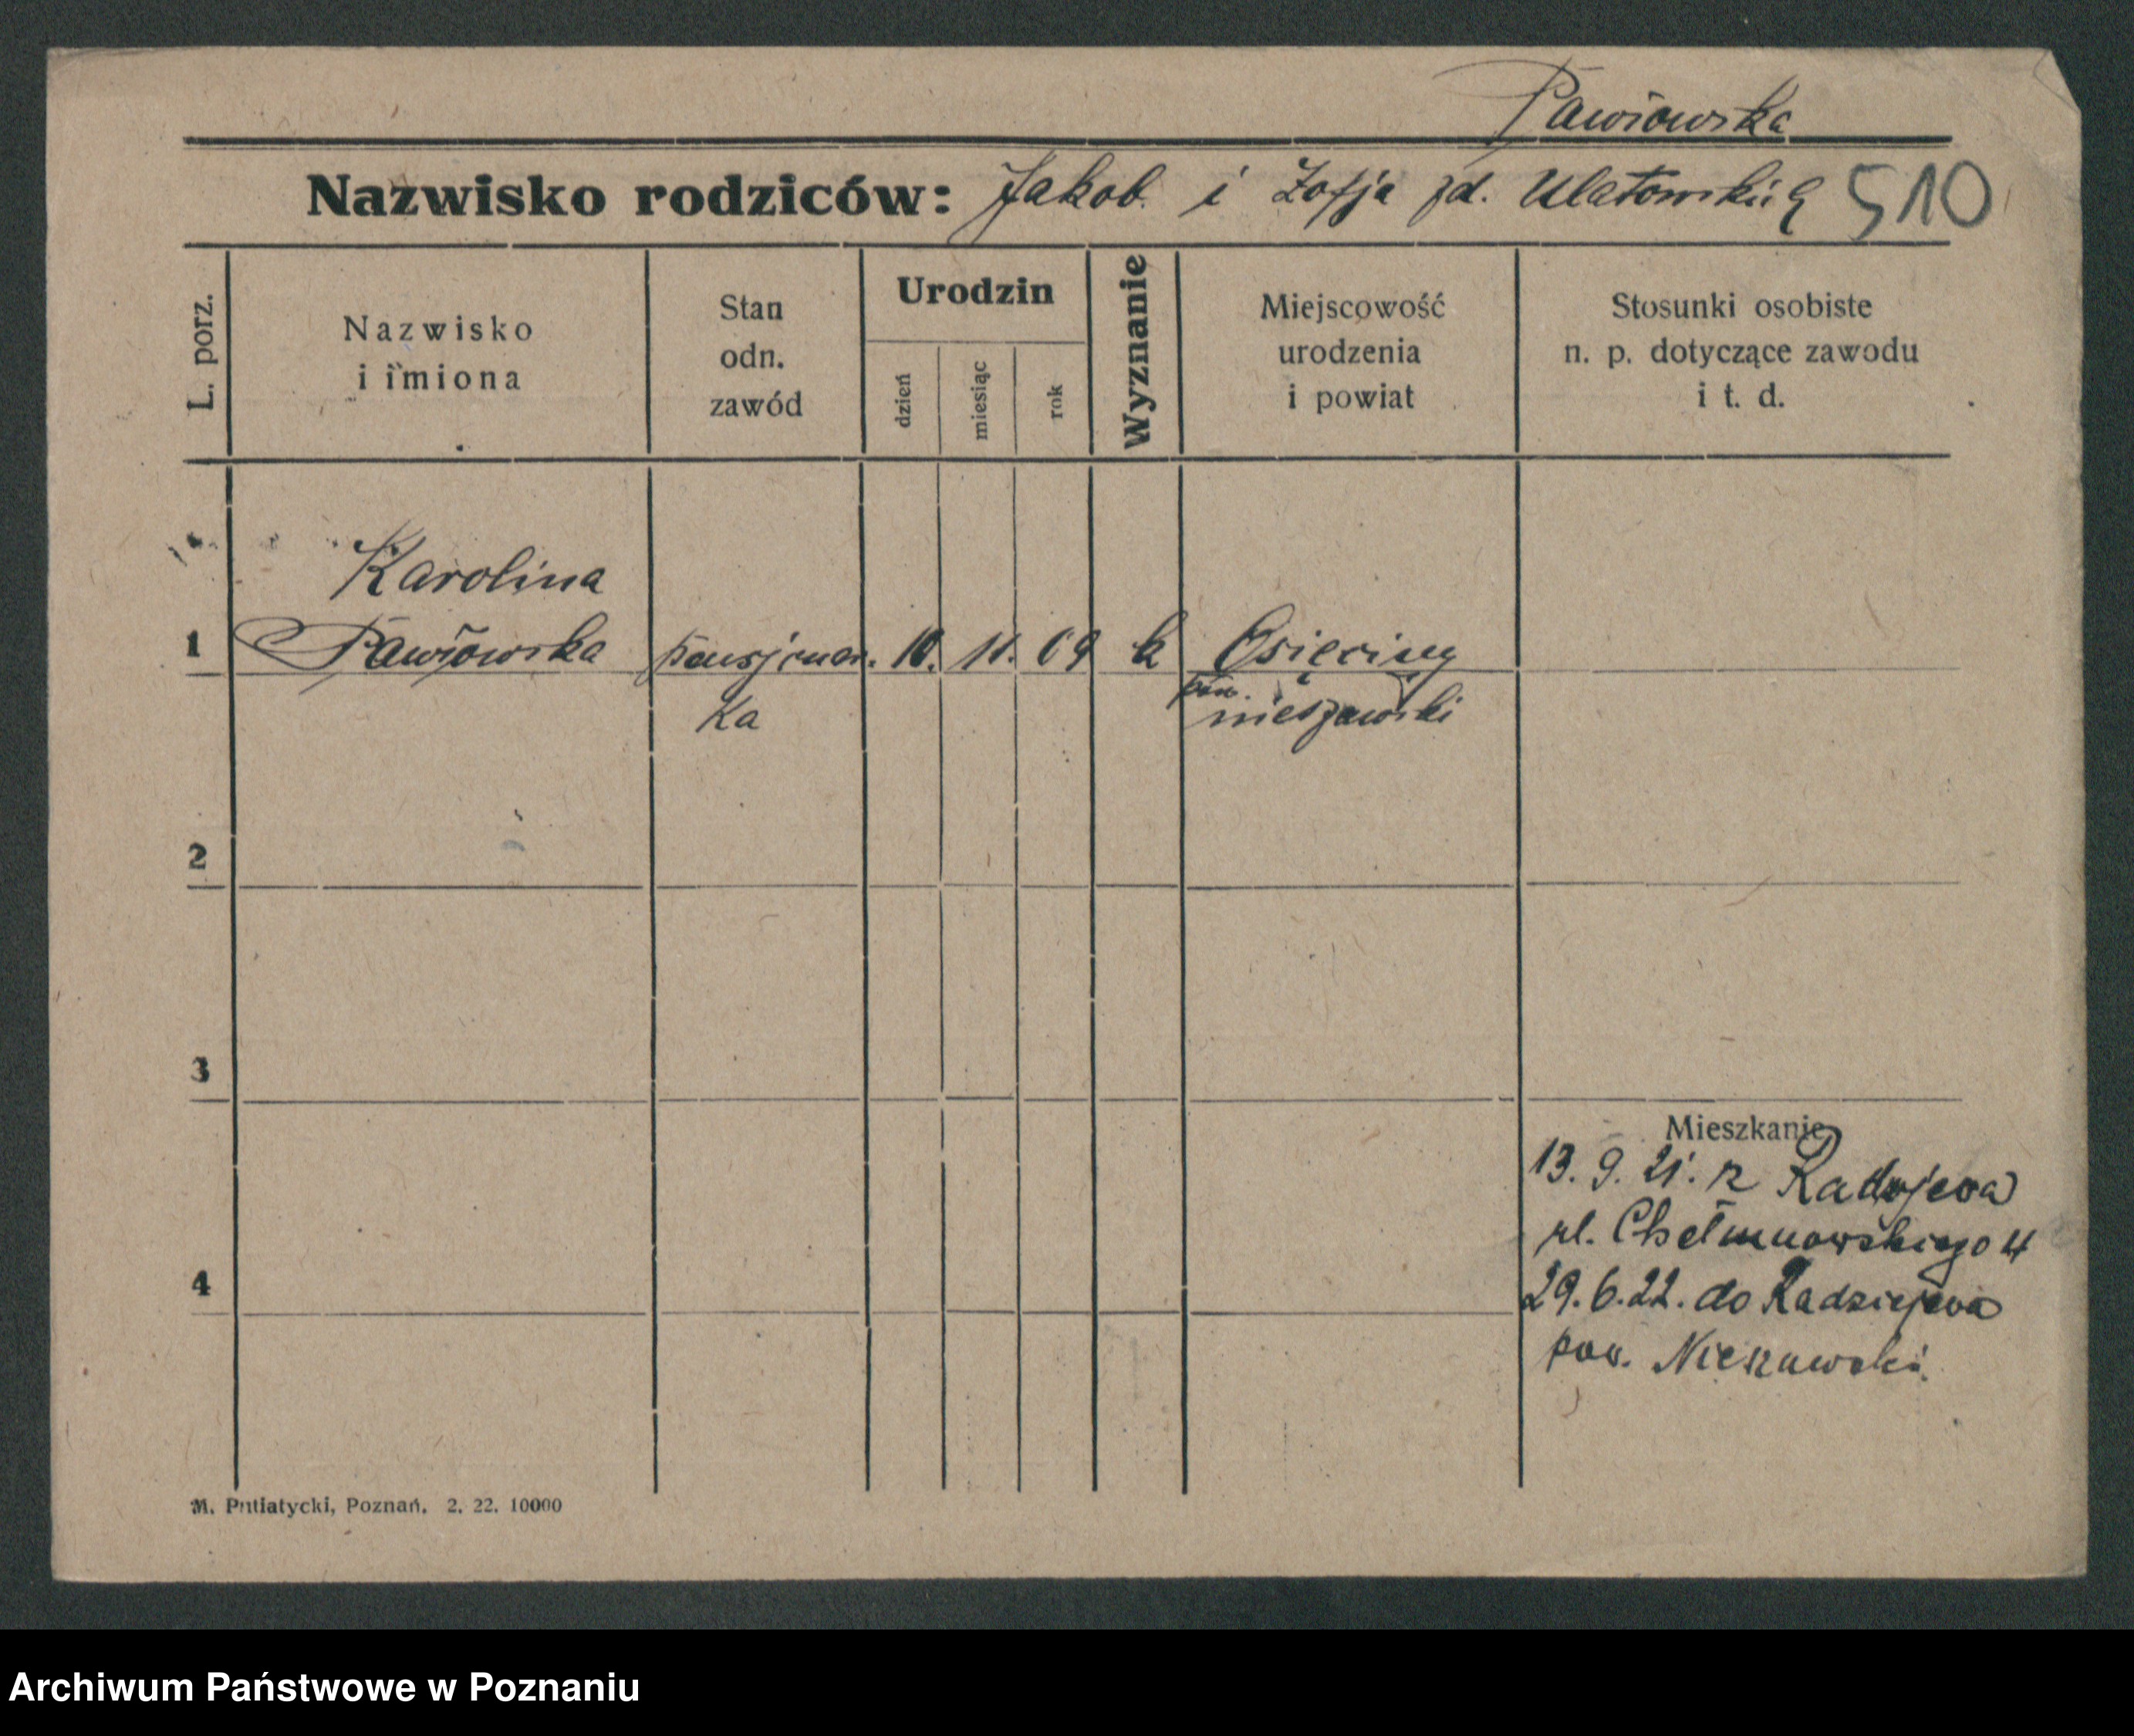 Pawłowska
Nazwisko rodziców: Jakob i Zofja zd. Ulatowskich 510
L. porz.
Nazwisko
i imiona
Stan
odn.
zawód
Urodzin
dzień
miesiąc
rok
Wyznanie
Miejscowość
urodzenia
i powiat
Stosunki osobiste
n. p. dotyczące zawodu
i t. d.
Karolina
1 Pawłowska pensjonar. 10. 11. 09 k Osięciny
ka
pow.
nieszawski
2
3
Mieszkanie
13. 9. 21. z Radojewa
ul. Chełmnowskiego 4
4
29. 6. 22. do Radziejewa
pow. Nieszawski.
M. Putiatycki, Poznań. 2. 22. 10000
Archiwum Państwowe w Poznaniu